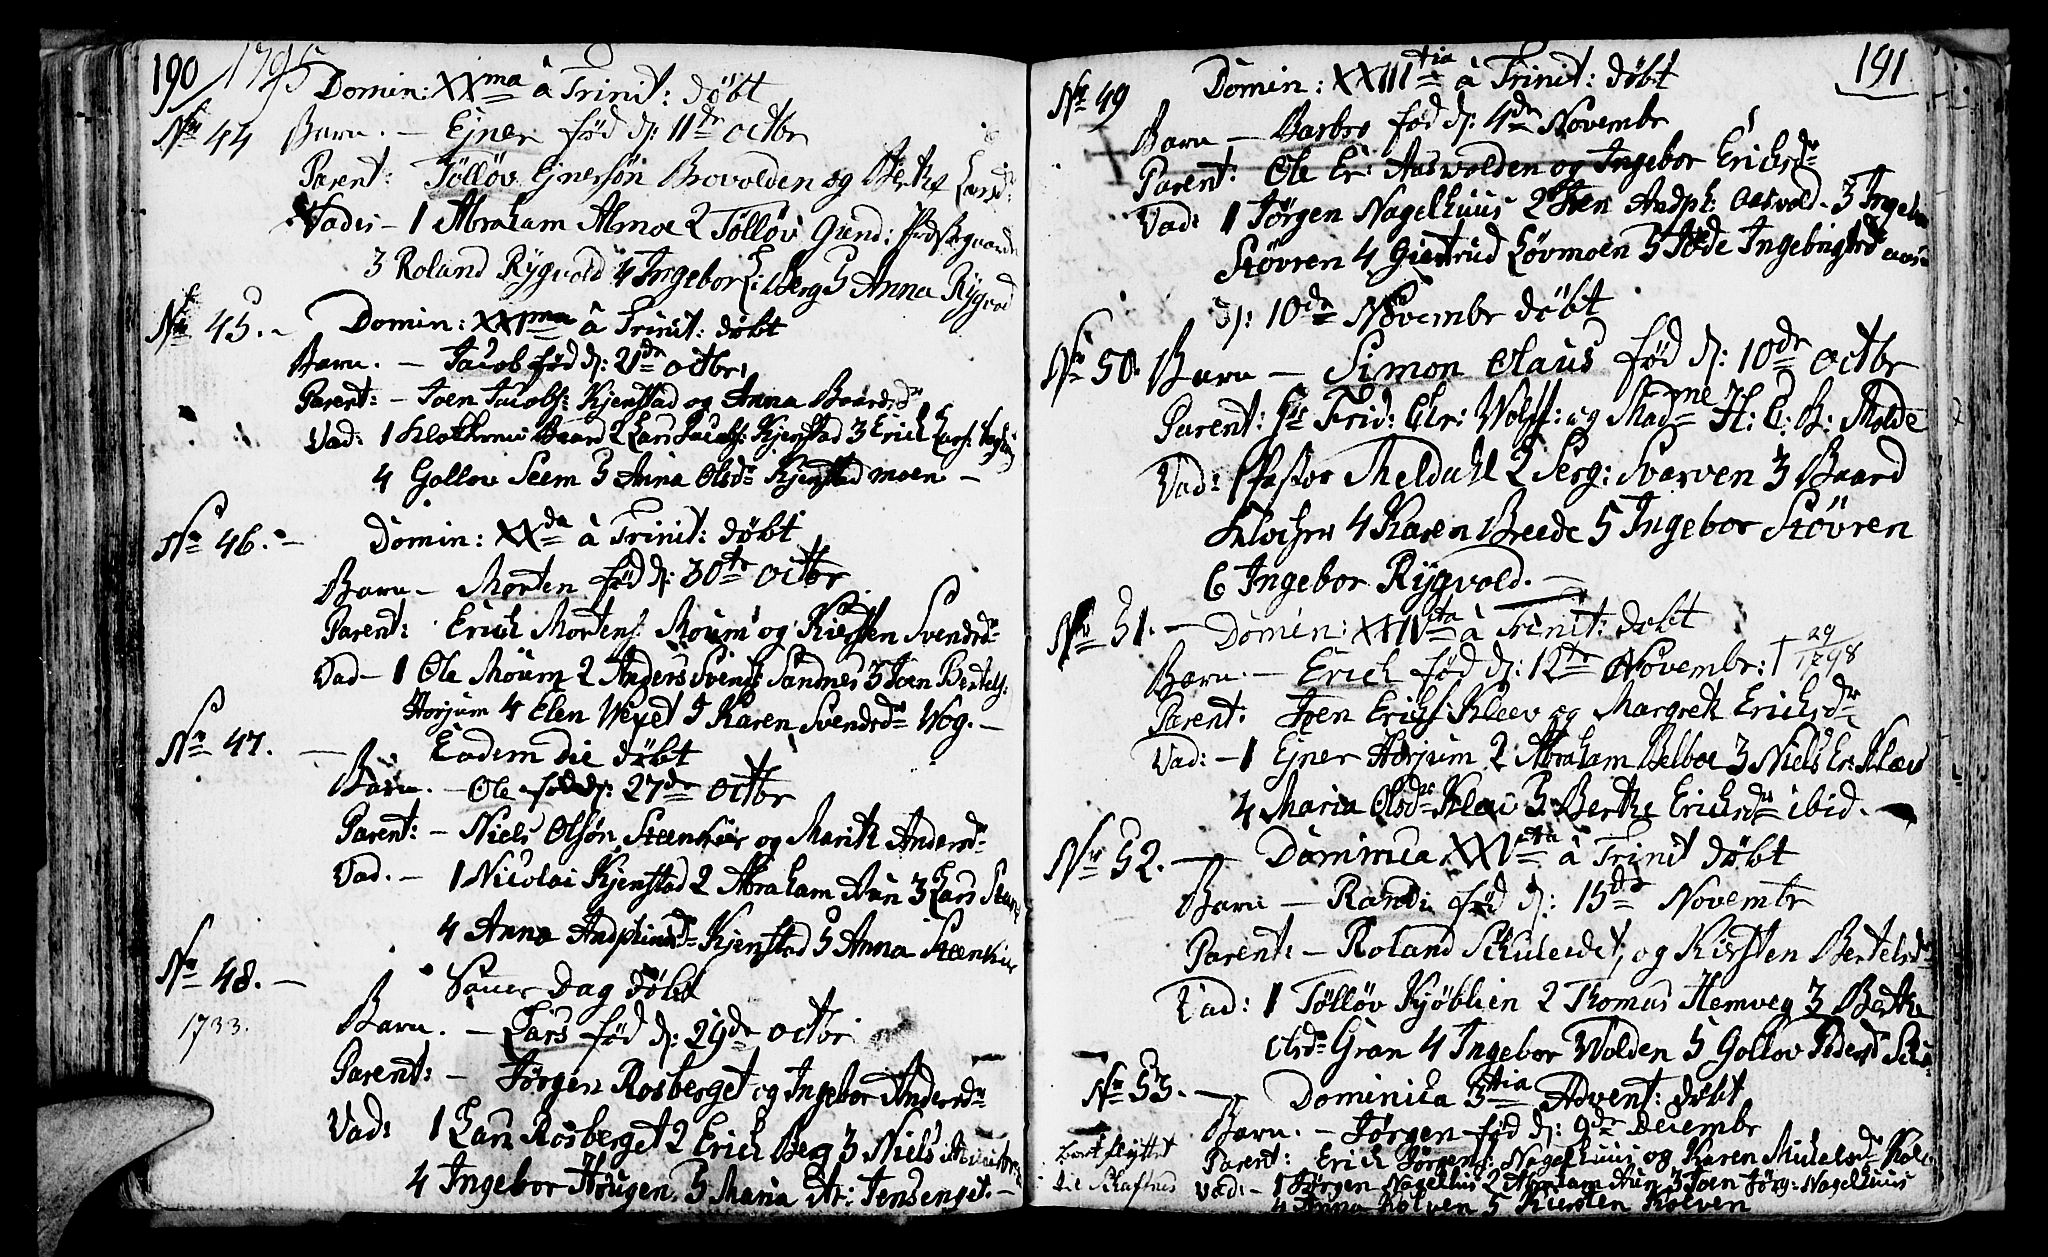 190 1795
Domin: XXma â Trinit: döbt
No 44 Barn. – Ejner fød d: 11te Octbr
Parent: Tölløv Ejnersön Brovolden og Berthe Larsd:
Vadis – 1 Abraham Almoe 2 Tölløv Gund:
3 Roland Rygvold 4 Ingebor L: Berg 5 Anna Rygvod
No 45. – Domin: XXIma â Trinit: döbt
Barn. – Jacob fød d: 21de Octbr
Parent: – Joen Jacobs: Kjenstad og Anna Baardsdr
Vad: 1 Klokkeren Baard 2 Lars Jacobs: Kjenstad 3 Erich Lars:
4 Gollov Seem 5 Anna Olsdr Kjenstad moen –
No 46. – Domin: XXda â Trinit: döbt
Barn – Morten fød d: 30te Octbr
Parent: Erich Mortens: Moum og Kiersten Svendsdr
Vad – 1 Ole Moum 2 Anders Svends: Sandnes 3 Joen Bertels:
Horjum 4 Elen Wexet 5 Karen Svendsdr Wog. –
No 47. – Eadem die döbt
Barn. – Ole fød d: 27de Octbr
Parent: – Niels Olsön Steenkier og Marith Andersdr
Vad. – 1 Nicolai Kjenstad 2 Abraham Aun 3 Lars
4 Anna Andphinsdr Kjenstad 5 Anna Steenkier
No 48. – Samer Dag döbt
1733. Barn. – Lars fød d: 29de Octbr
Parent: – Jørgen Rosberget og Ingebor Andersdr
Vad: 1 Lars Rosberget 2 Erich Berg 3 Niels
4 Ingebor Hougen. 5 Maria Ar: Jensenget. –
191
No 49 Domin: XXIIItia â Trinit: döbt
Barn – Barbro fød d: 4de Novembr
Parent: Ole Er: Aasvolden og Ingebor Erichsdr
Vad: 1 Jørgen Nagelhuus 2 Joen Andph: Aasvold. 3 Ingebor
Støvren 4 Giertrud Løvmoen 5 Ingebrigtsdr
d: 10de Novembr döbt
No 50. Barn – Simon Olaus fød d: 10de Octbr
Parent: Hr Frid: Chr: Wolff: og Madme H: C: B: Molde
Vad: 1 Pastor Meldahl 2 Serg: Svarven 3 Baard
Klocher 4 Karen Breede 5 Ingebor Støvren
6 Ingebor Rygvold. –
No 51. – Domin: XXIVta â Trinit: døbt
Barn. – Erich fød d: 12te Novembr: † 29/1798
Parent: Joen Erichs: Kleev og Margreth Erichsdr
Vad: – 1 Ejner Horjum 2 Abraham Belboe 3 Niels Er: Klæv
4 Maria Olsdr Klev 5 Berthe Erichsdr ibid. –
No 52. – Dominica XXVta â Trinit döbt
Barn – Randi fød d: 15de Novembr
Parent: – Roland Skuleedet, og Kirsten Bertelsdr
Vad: 1 Tölløv Kjøblien 2 Thomas Hemveg 3 Berthe
Olsdr Gran 4 Ingebor Wolden 5 Gollov Pedersdr
No 53. – Dominica 3tia Advent: døbt
Barn. – Jørgen fød d: 9de Decembr
bort flyttet
Parent: Erich Jørgens: Nagelhuus og Karen Michelsdr
til Skaftnes
Vad: – 1 Jørgen Nagelhus 2 Abraham Aun 3 Joen Jørg: Nagelhuus
4 Anna Kolven 5 Kiersten Kolven